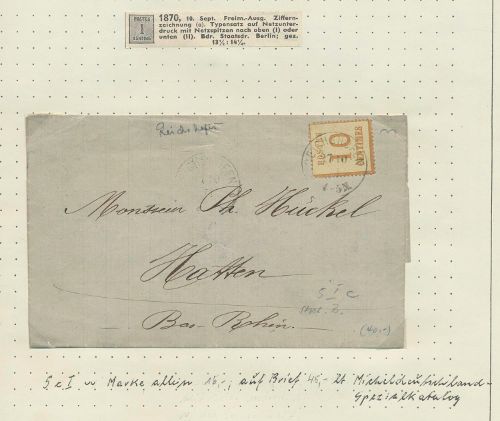 POSTES
1
CENTIMES
1870, 10. Sept. Freim.-Ausg. Ziffern-
zeichnung (a). Typensatz auf Netzunter-
druck mit Netzspitzen nach oben (I) oder
unten (II). Bdr. Staatsdr. Berlin; gez.
13½:14¼.
POSTES
10
CENTIMES
Monsieur Ph. Hückel
Hatten
Bas-Rhin.
5 I c
(40.-)
5 c I a Marke allein 16,-, auf Brief 45,- lt Micheldeutschland-
Spezialkatalog